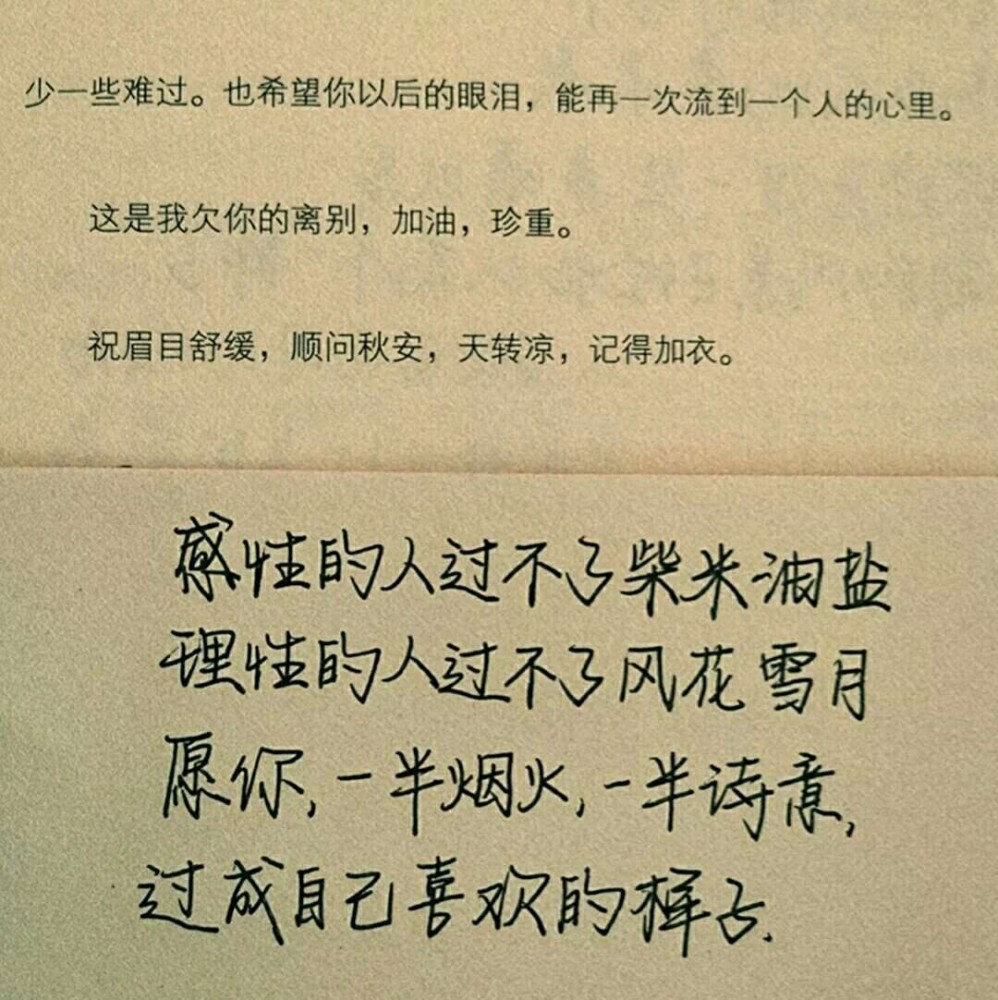 少一些难过。也希望你以后的眼泪，能再一次流到一个人的心里。
这是我欠你的离别，加油，珍重。
祝眉目舒缓，顺问秋安，天转凉，记得加衣。
感性的人过不了柴米油盐
理性的人过不了风花雪月
愿你,一半烟火,一半诗意,
过成自己喜欢的样子.